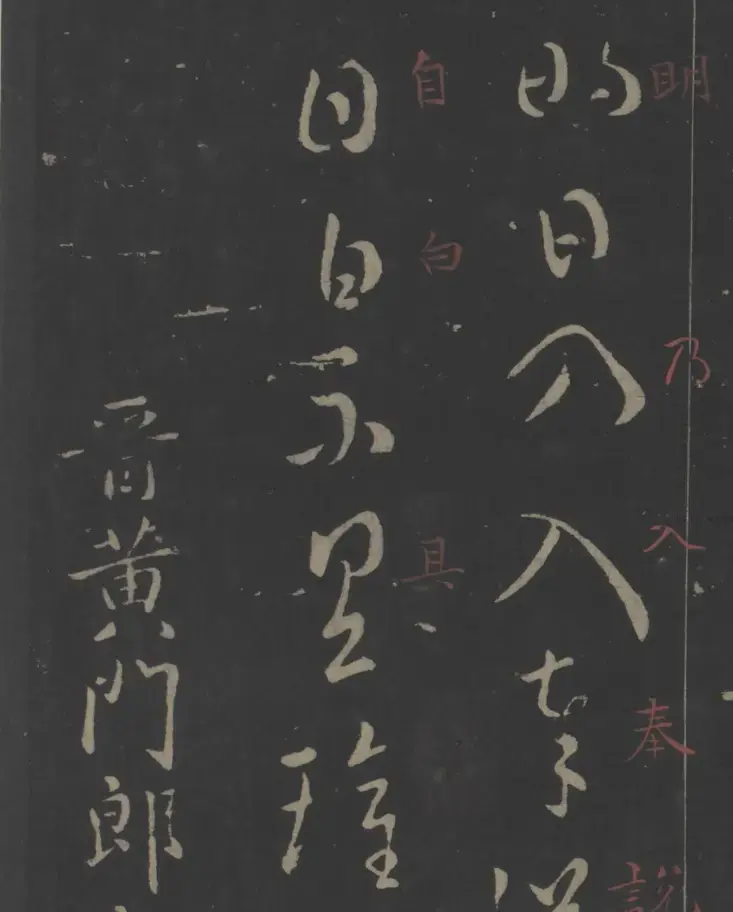 明乃入奉說
明日乃入奉說
自白具
自白不具瓘
晉黃門郎